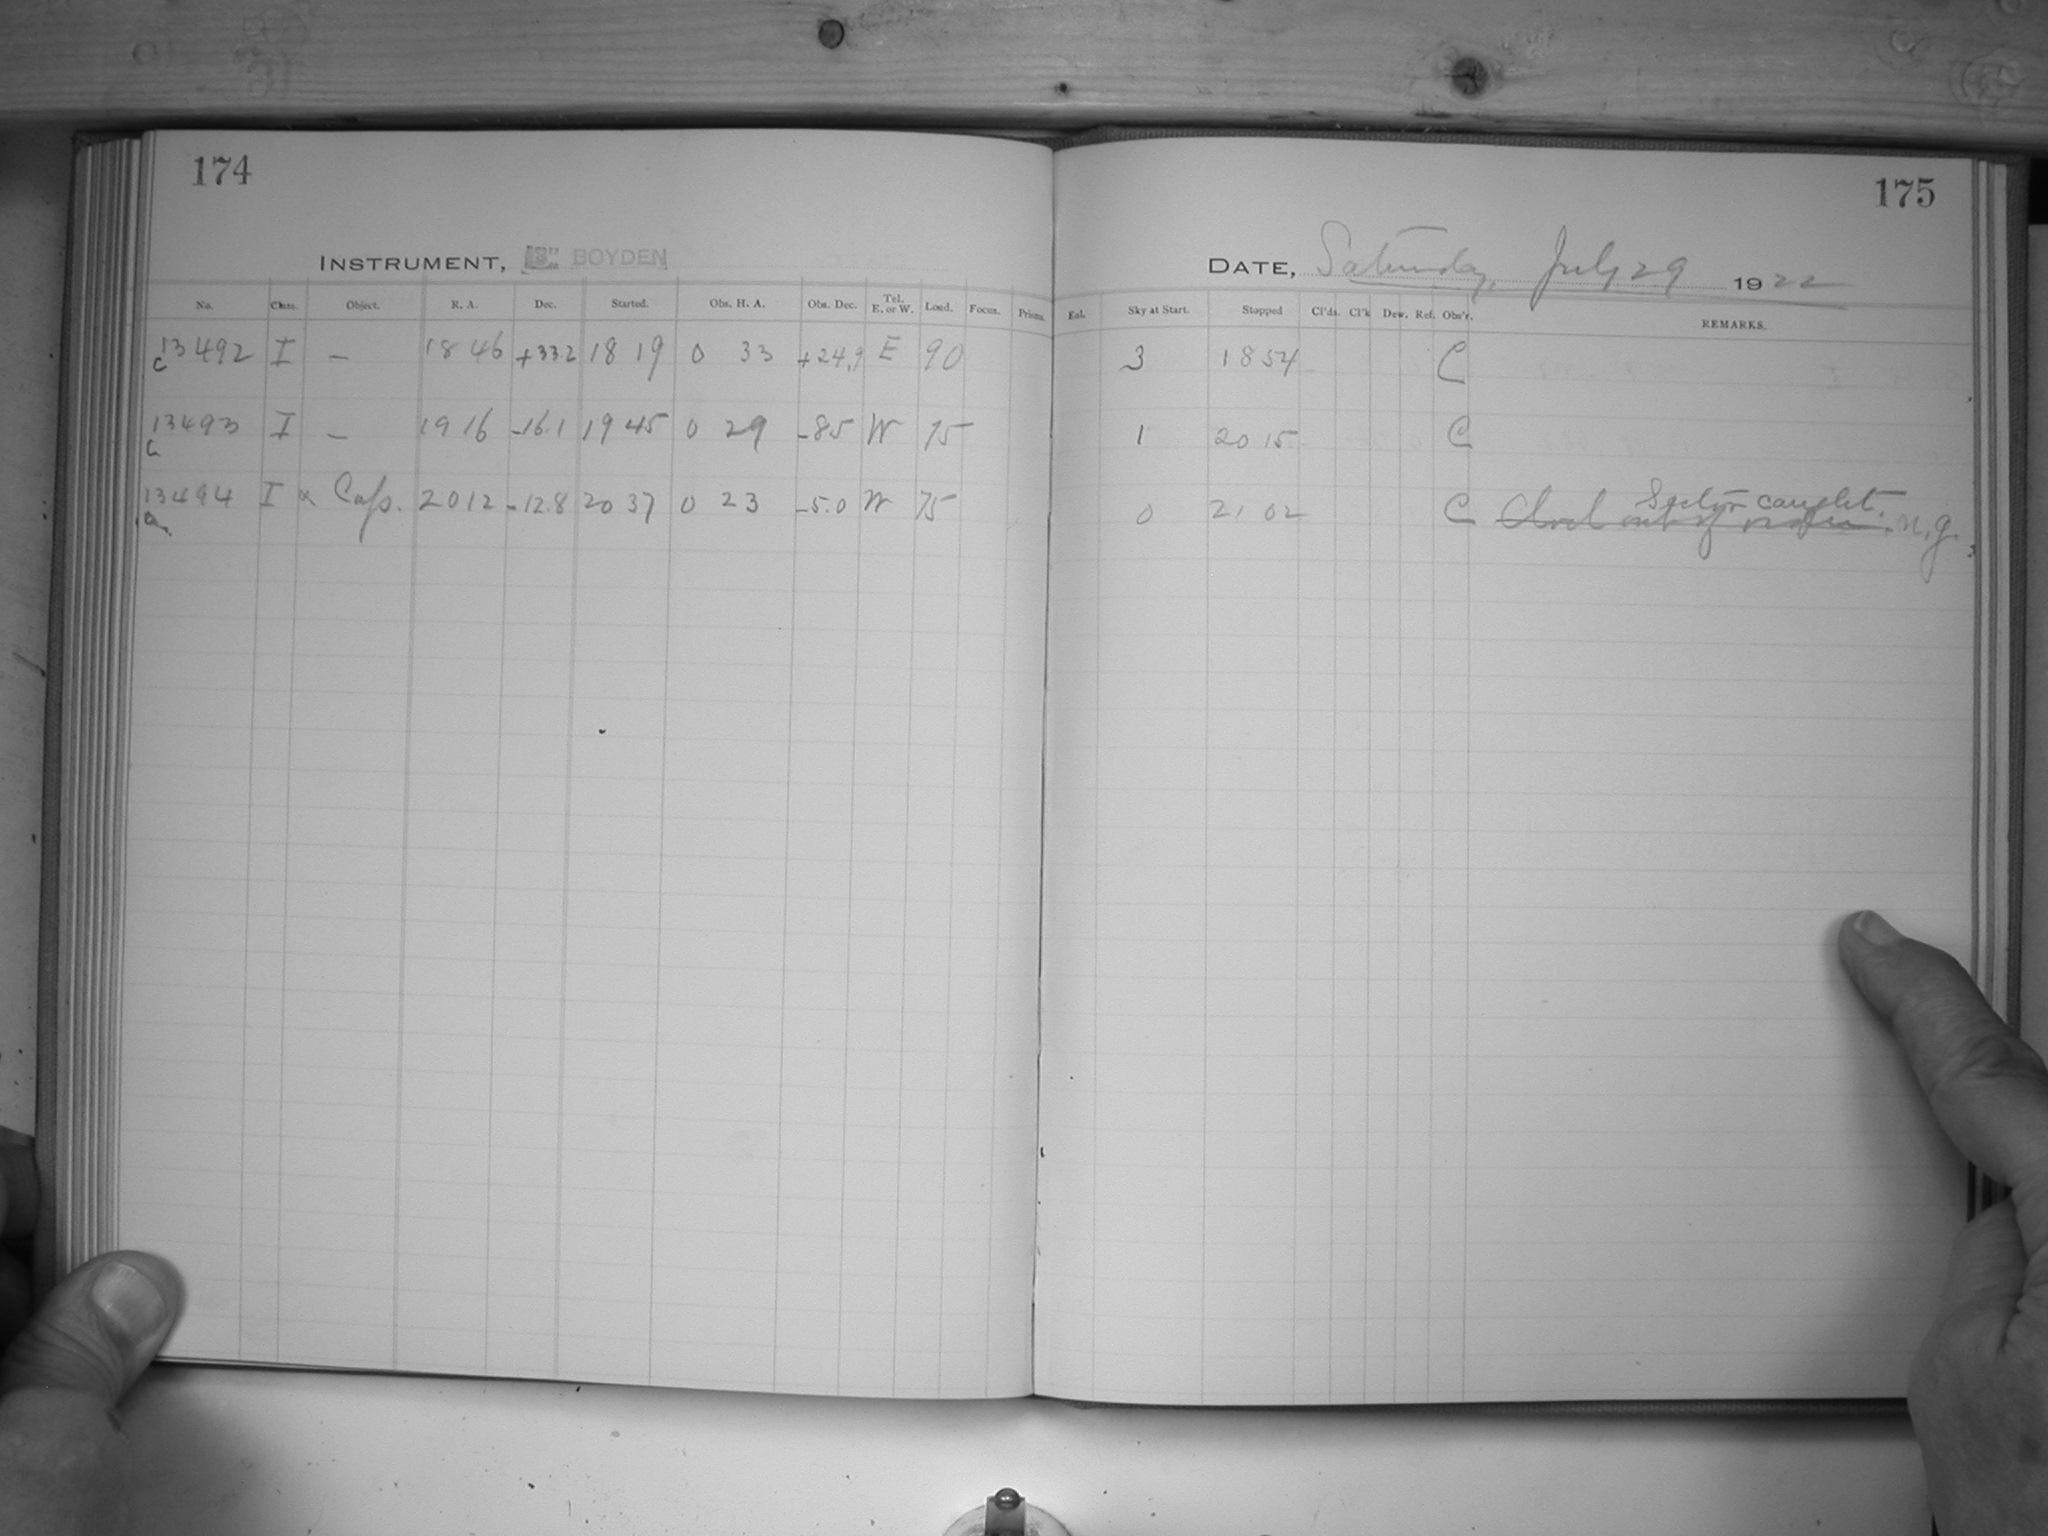 174
175
INSTRUMENT, 13" BOYDEN
DATE, Saturday, July 29 1922
No. Class. Object. R. A. Dec. Started. Obs. H. A. Obs. Dec. Tel. E. or W. Load. Focus. Prisms. Eol. Sky at Start. Stopped Cl'ds. Cl'k Dew. Ref. Obs'r. REMARKS.
13492 I – 18 46 +33.2 18 19 0 33 +24.9 E 90 3 18 54 C
c
13493 I – 19 16 -16.1 19 45 0 29 -8.5 W 75 1 20 15 C
c
13494 I α Cap. 20 12 -12.8 20 37 0 23 -5.0 W 75 0 21 02 C
Sector caught.
Clock out of n.g.
a